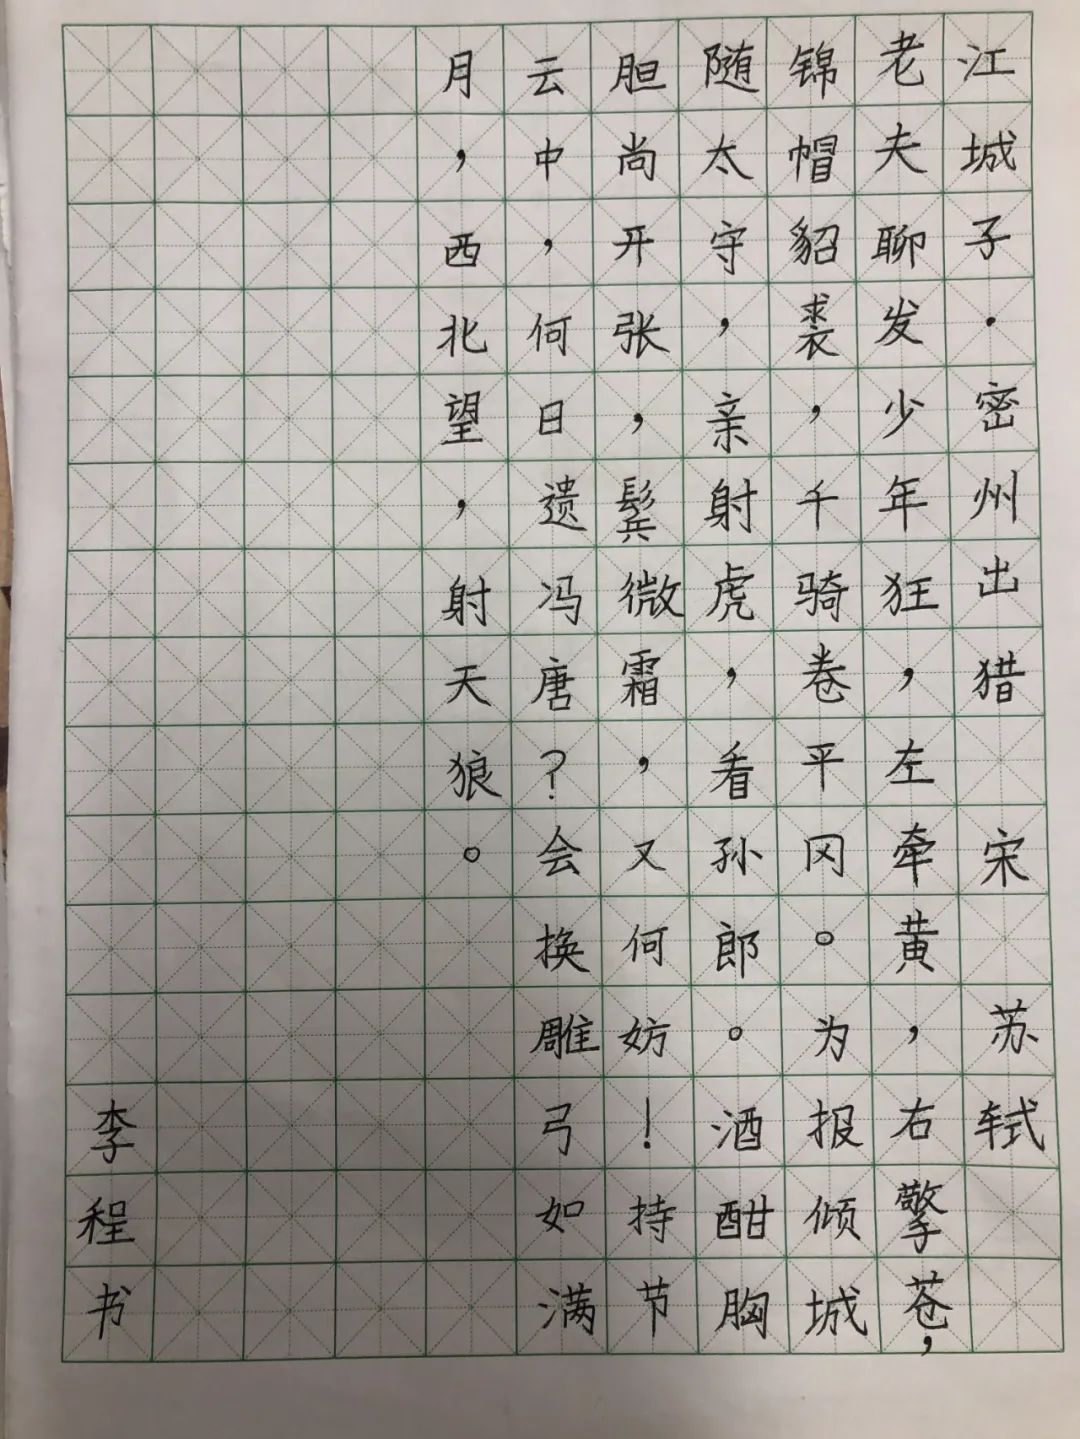 江城子·密州出猎 宋 苏轼
老夫聊发少年狂，左牵黄，右擎苍，
锦帽貂裘，千骑卷平冈。为报倾城
随太守，亲射虎，看孙郎。酒酣胸
胆尚开张，鬓微霜，又何妨！持节
云中，何日遣冯唐？会挽雕弓如满
月，西北望，射天狼。
李程书